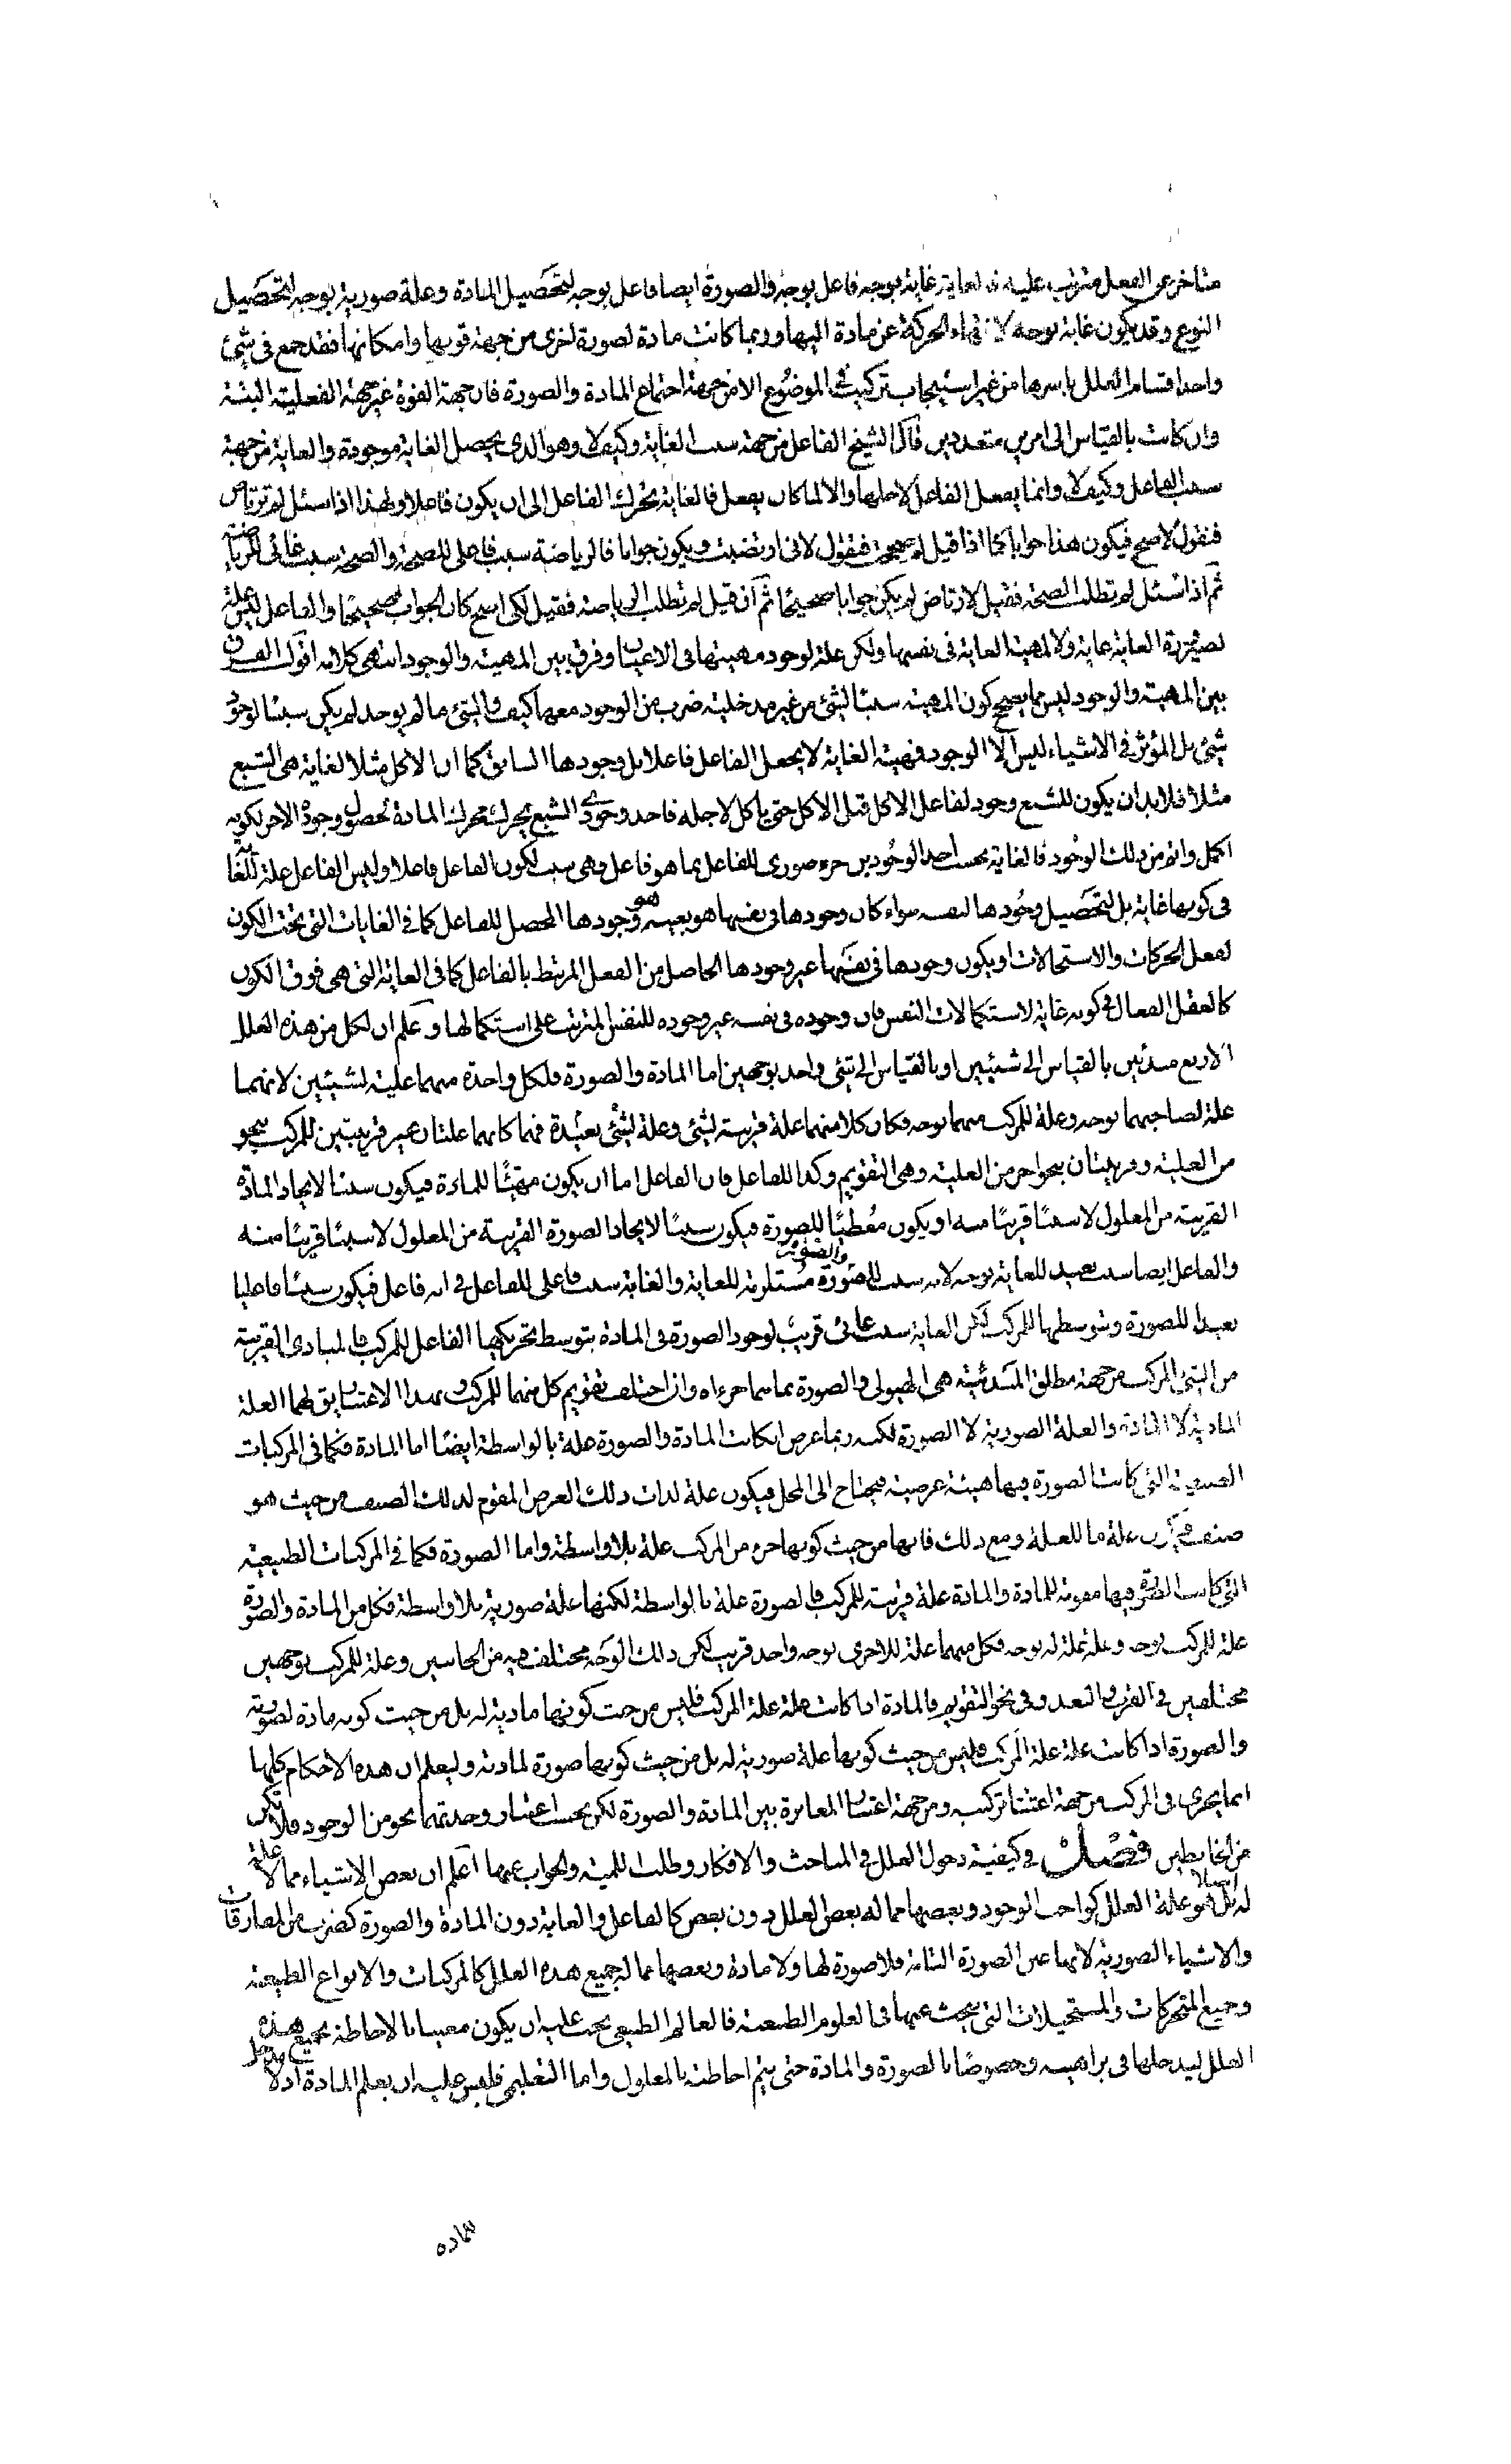 متاخر عن الفعل مترتب عليه فالغاية غاية بوجه فاعل بوجه والصورة ايضا فاعل بوجه لتحصيل المادة وعلة صورية بوجه لتحصيل
النوع وقد يكون غاية بوجه لانتهاء الحركة عن مادة اليها وربما كانت مادة لصورة اخرى من جهة قوتها وامكانها فقد جمع فى شئ
واحد اقسام العلل باسرها من غير استيجاب تركيب فى الموضوع الا من جهة اجتماع المادة والصورة فان جهة القوة غير جهة الفعلية البتة
وان كانت بالقياس الى امرين متعددين قال الشيخ الفاعل من جهة سبب الغاية وكيف لا وهو الذى يحصل الغاية موجودة والغاية من جهة
سبب الفاعل وكيف لا وانما يفعل الفاعل لاجلها والا لما كان يفعل فالغاية تحرك الفاعل الى ان يكون فاعلا ولهذا اذا سئل لم ترتاض
فنقول لاصح فيكون هذا جوابا كما اذا قيل لم صححت فنقول لانى ارتضيت ويكون جوابا فالرياضة سبب فاعلى للصحة والصحة سبب غائى للرياضة
ثم اذا سئل لم تطلب الصحة فقيل لارتاض لم يكن جوابا صحيحا ثم ان قيل لم تطلب الرياضة فقيل لكى اصح كان الجواب صحيحا والفاعل ليس علة
لصيرورة الغاية غاية ولا لمهية الغاية فى نفسها ولكن علة لوجود مهيتها فى الاعيان وفرق بين المهية والوجود انتهى كلامه اقول الفرق
بين المهية والوجود ليس مما يصحح كون المهية سببا لشئ من غير مدخلية ضرب من الوجود معها كيف والشئ ما لم يوجد لم يكن سببا لوجود
شئ بل المؤثر فى الاشياء ليس الا الوجود فمهية الغاية لا يجعل الفاعل فاعلا بل وجودها السابق كما ان الاكل مثلا لغاية هى الشبع
مثلا فلا بد ان يكون للشبع وجود لفاعل الاكل قبل الاكل حتى ياكل لاجله فاحد وجودى الشبع يحرك محرك المادة لحصول وجوده الاخر لكونه
اكمل واتم من ذلك الوجود فالغاية بحسب احد الوجودين جزء صورى للفاعل بما هو فاعل وهى سبب لكون الفاعل فاعلا وليس الفاعل علة للغاية
فى كونها غاية بل لتحصيل وجودها لنفسه سواء كان وجودها فى نفسها هو بعينه هو وجودها المحصل للفاعل كما فى الغايات التى تحت الكون
لفعل الحركات والاستحالات او يكون وجودها فى نفسها غير وجودها الحاصل من الفعل المرتبط بالفاعل كما فى الغاية التى هى فوق الكون
كالعقل الفعال فى كونه غاية لاستكمالات النفس فان وجوده فى نفسه غير وجوده للنفس المترتب على استكمالها وعلم ان لكل من هذه العلل
الاربع مبدئين بالقياس الى شيئين او بالقياس الى شئ واحد بوجهين اما المادة والصورة فلكل واحدة منهما علية لشيئين لانهما
علة لصاحبهما بوجه وعلة للمركب منهما بوجه فكان كلا منهما علة قريبة لشئ وعلة لشئ بعيدة فهما كانهما علتان غير قريبتين للمركب بنحو
من العلية وقريبتان بنحو اخر من العلية وهى التقويم وكذا للفاعل فان الفاعل اما ان يكون مهيئا للمادة فيكون سببا لايجاد المادة
القريبة من المعلول لا سببا قريبا منه او يكون معطيا للصورة فيكون سببا لايجاد الصورة القريبة من المعلول لا سببا قريبا منه
والفاعل ايضا سبب بعيد للغاية بوجه لانه سبب للصورة والصورة مستلزمة للغاية والغاية سبب فاعلى للفاعل فى انه فاعل فيكون سببا فاعليا
بعيدا للصورة وبتوسطها للمركب لكن الغاية سبب غائى قريب لوجود الصورة فى المادة بتوسط تحريكها الفاعل للمركب فالمبادى القريبة
من الشئ المركب من جهة مطلق المبدئية هى الهيولى والصورة بما هما جزءاه وان اختلف تقويم كل منهما للمركب وبهذا الاعتبار يق لهما العلة
المادية لا المادة والعلة الصورية لا الصورة لكنه ربما عرض ان كانت المادة والصورة علة بالواسطة ايضا اما المادة فكما فى المركبات
الصنفية التى كانت الصورة فيها هيئة عرضية فيحتاج الى المحل فيكون علة لذات ذلك العرض المقوم لذلك الصنف من حيث هو
صنف فيكون علة ما للعلة ومع ذلك فانها من حيث كونها جزء من المركب علة بلا واسطة واما الصورة فكما فى المركبات الطبيعية
التى كانت الصورة فيها مقومة للمادة والمادة علة قريبة للمركب فالصورة علة بالواسطة لكنها علة صورية بلا واسطة فكل من المادة والصورة
علة للمركب بوجه وعلة علة له بوجه فكل منهما علة للاخرى بوجه واحد قريب لكن ذلك الوجه مختلف فيه من الجانبين وعلة للمركب بوجهين
مختلفين فى القرب والبعد وفى نحو التقويم فالمادة اذا كانت علة علة المركب فليس من حيث كونها مادية له بل من حيث كونه مادة لصورته
والصورة اذا كانت علة علة المركب فليس من حيث كونها علة صورية له بل من حيث كونها صورة لمادته وليعلم ان هذه الاحكام كلها
انما يجرى فى المركب من جهة اعتبار تركيبه ومن جهة اعتبار المغايرة بين المادة والصورة لكن بحسب اعتبار وحدتهما بنحو من الوجود فلا تكن
من الخابطين فصل فى كيفية دخول العلل فى المباحث والافكار وطلب اللمية والجواب عنها اعلم ان بعض الاشياء مما لا علة
له اصلا بل هو علة العلل كواجب الوجود وبعضها مما له بعض العلل دون بعض كالفاعل والغاية دون المادة والصورة كضرب من المفارقات
والاشياء الصورية لانها عين الصورة التامة فلا صورة لها ولا مادة وبعضها مما له جميع هذه العلل كالمركبات والانواع الطبيعية
وجميع المتحركات والمستحيلات التى يبحث عنها فى العلوم الطبيعية فالعالم الطبيعى يجب عليه ان يكون معنيا بالاحاطة بجميع هذه
العلل ليدخلها فى براهينه وخصوصا بالصورة والمادة حتى يتم احاطته بالمعلول واما التعليمى فليس عليه ان يعلم المادة اذ لا مدخل
للمادة